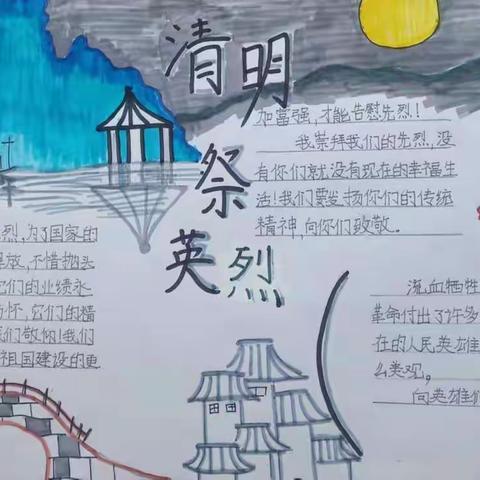 清明
祭
英烈
烈，为了国家的
放，不惜抛头
们的业绩永
怀，它们的精
我们敬仰！我们
祖国建设的更
加富强，才能告慰先烈！
我崇拜我们的先烈，没
有你们就没有现在的幸福生
活！我们要发扬你们的传统
精神，向你们致敬。
流血牺牲
革命付出了许多
在的人民英雄
么美观。
向英雄们